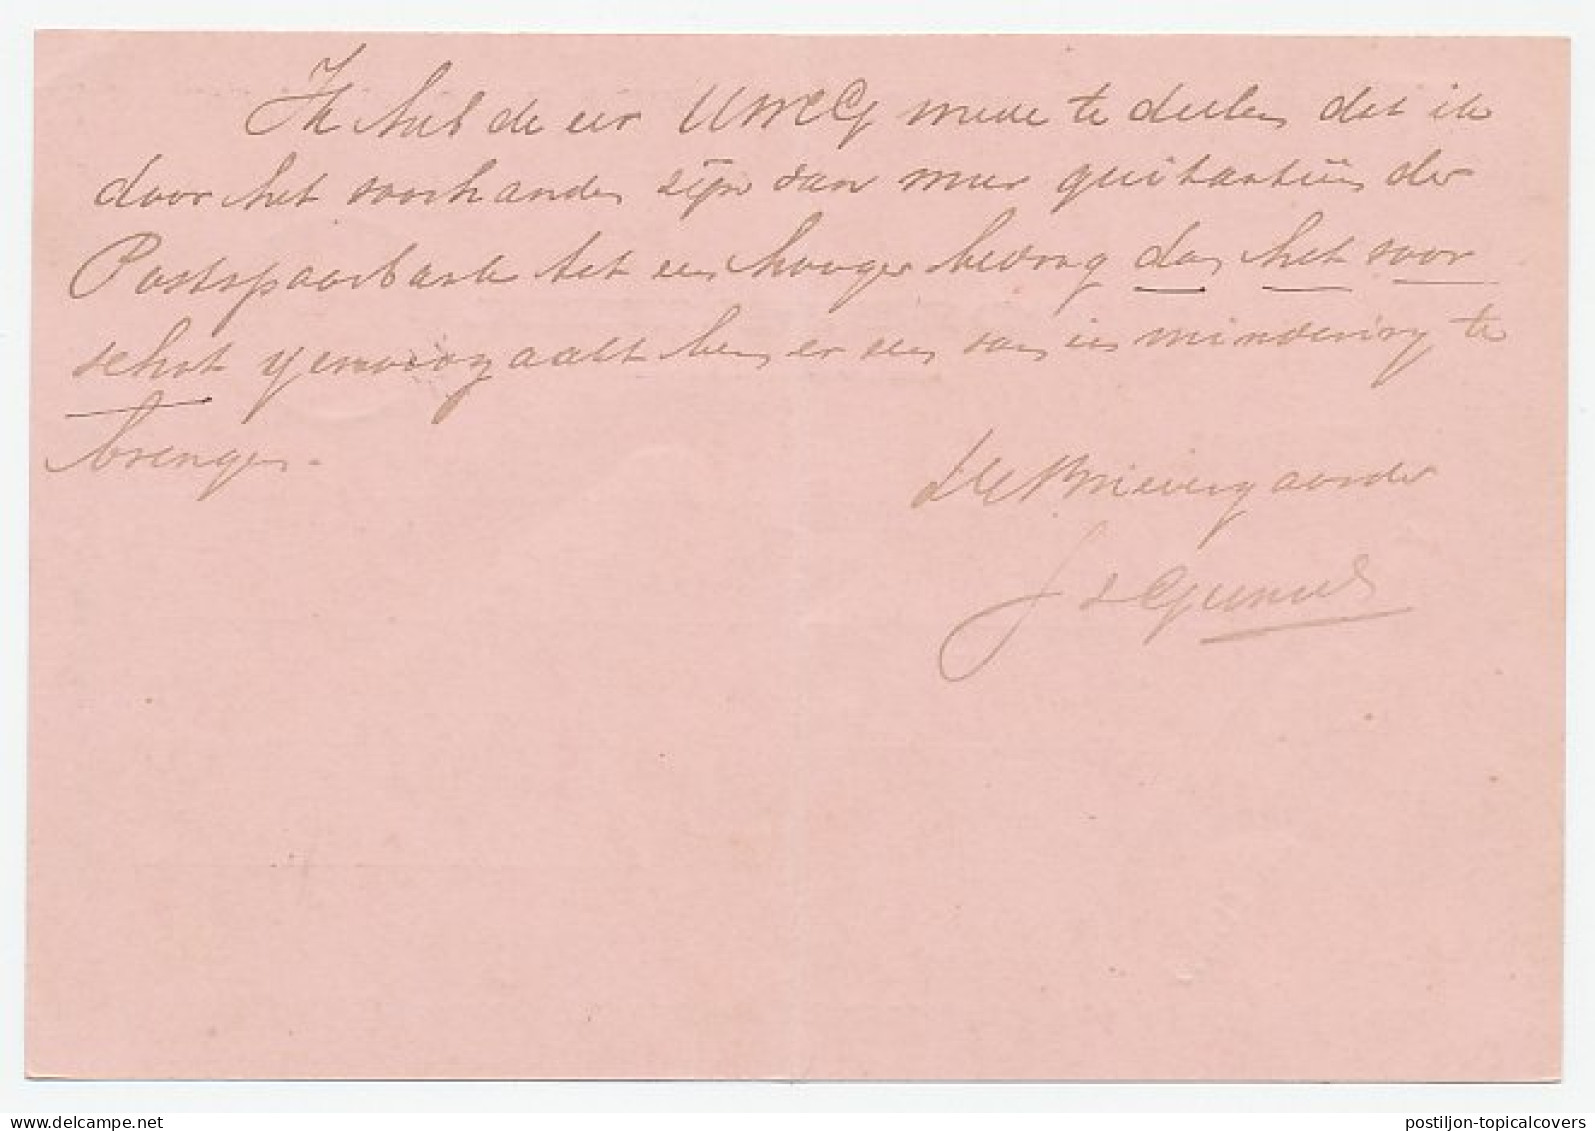 Ik heb de eer UWEG mede te deelen dat ik
door het voorhanden zijn van meer quitantiën der
Postspaarbank tot een hooger bedrag dan het voor
schot genoodzaakt ben er een van in mindering te
brengen.
De Brievengaarder
J d
delcampe.net
postiljon-topicalcovers